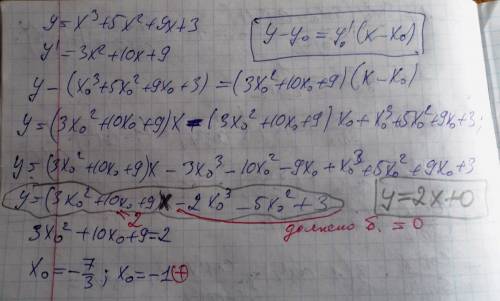 y=x³+5x²+9x+3
y-y₀=y₀'(x-x₀)
y'=3x²+10x+9
y-(x₀³+5x₀²+9x₀+3)=(3x₀²+10x₀+9)(x-x₀)
y=(3x₀²+10x₀+9)x-(3x₀²+10x₀+9)x₀+x₀³+5x₀²+9x₀+3;
y=(3x₀²+10x₀+9)x-3x₀³-10x₀²-9x₀+x₀³+5x₀²+9x₀+3
y=(3x₀²+10x₀+9)x-2x₀³-5x₀²+3 y=2x+0
2 должено б. = 0
3x₀²+10x₀+9=2
x₀=-7/3; x₀=-1⊕